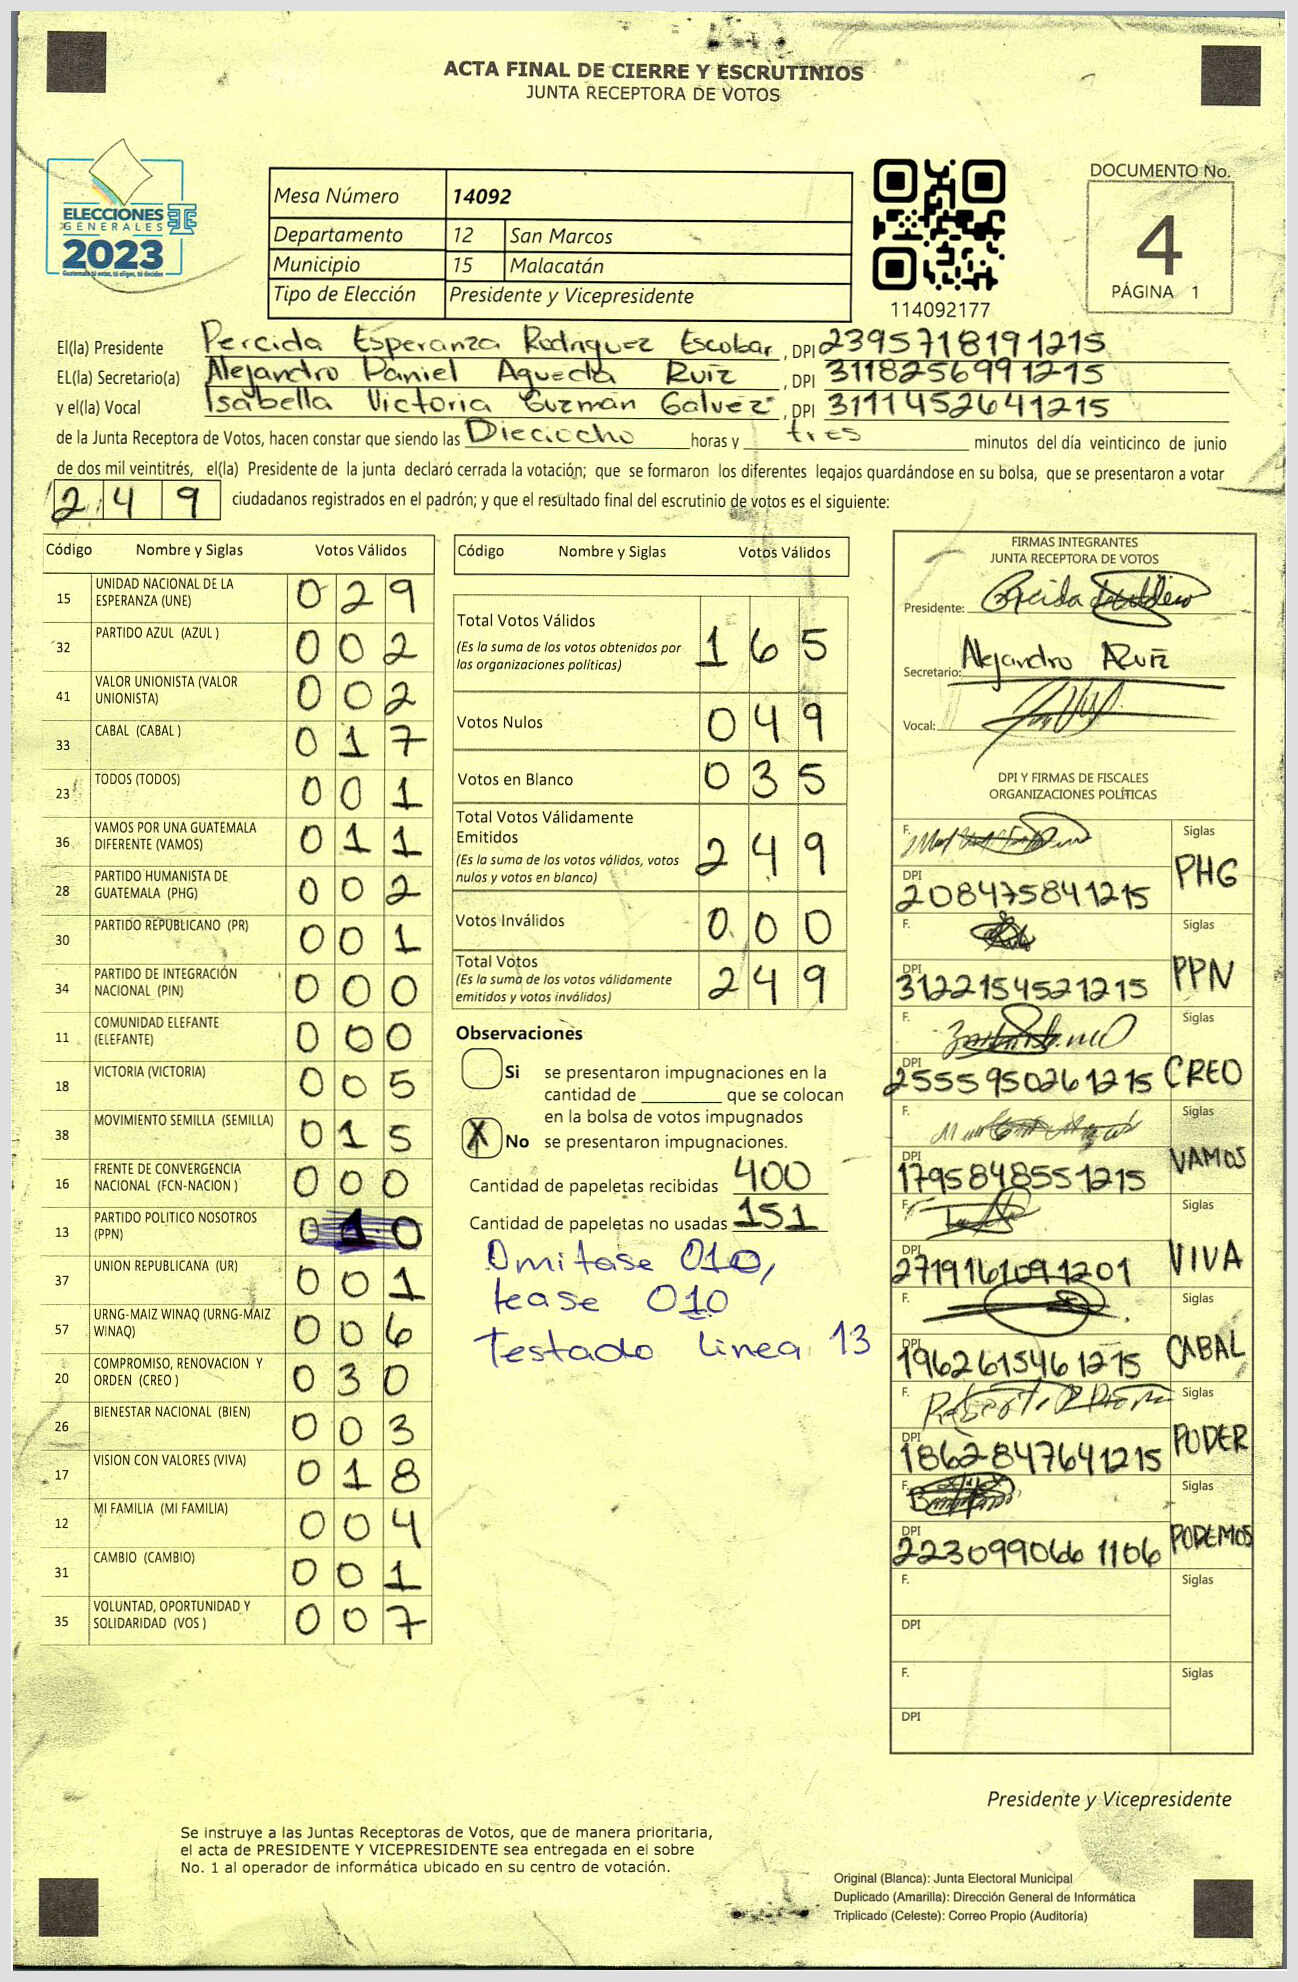 ACTA FINAL DE CIERRE Y ESCRUTINIOS
JUNTA RECEPTORA DE VOTOS
ELECCIONES
GENERALES
2023
Guatemala tú votas, tú eliges, tú decides
Mesa Número 14092
Departamento 12 San Marcos
Municipio 15 Malacatán
Tipo de Elección Presidente y Vicepresidente
114092177
DOCUMENTO No.
4
PÁGINA 1
El(la) Presidente Percida Esperanza Rodriguez Escobar, DPI 2395718191215
EL(la) Secretario(a) Alejandro Daniel Agueda Ruiz, DPI 3118256991215
y el(la) Vocal Isabella Victoria Guzmán Galvez, DPI 3111452641215
de la Junta Receptora de Votos, hacen constar que siendo las Dieciocho horas y tres minutos del día veinticinco de junio
de dos mil veintitrés, el(la) Presidente de la junta declaró cerrada la votación; que se formaron los diferentes legajos guardándose en su bolsa, que se presentaron a votar
249 ciudadanos registrados en el padrón; y que el resultado final del escrutinio de votos es el siguiente:
Código Nombre y Siglas Votos Válidos
15 UNIDAD NACIONAL DE LA ESPERANZA (UNE) 029
32 PARTIDO AZUL (AZUL ) 002
41 VALOR UNIONISTA (VALOR UNIONISTA) 002
33 CABAL (CABAL ) 017
23 TODOS (TODOS) 001
36 VAMOS POR UNA GUATEMALA DIFERENTE (VAMOS) 011
28 PARTIDO HUMANISTA DE GUATEMALA (PHG) 002
30 PARTIDO REPUBLICANO (PR) 001
34 PARTIDO DE INTEGRACIÓN NACIONAL (PIN) 000
11 COMUNIDAD ELEFANTE (ELEFANTE) 000
18 VICTORIA (VICTORIA) 005
38 MOVIMIENTO SEMILLA (SEMILLA) 015
16 FRENTE DE CONVERGENCIA NACIONAL (FCN-NACION ) 000
13 PARTIDO POLITICO NOSOTROS (PPN) 010
37 UNION REPUBLICANA (UR) 001
57 URNG-MAIZ WINAQ (URNG-MAIZ WINAQ) 006
20 COMPROMISO, RENOVACION Y ORDEN (CREO ) 030
26 BIENESTAR NACIONAL (BIEN) 003
17 VISION CON VALORES (VIVA) 018
12 MI FAMILIA (MI FAMILIA) 004
31 CAMBIO (CAMBIO) 001
35 VOLUNTAD, OPORTUNIDAD Y SOLIDARIDAD (VOS ) 007
Código Nombre y Siglas Votos Válidos
Total Votos Válidos 165
(Es la suma de los votos obtenidos por
las organizaciones políticas)
Votos Nulos 049
Votos en Blanco 035
Total Votos Válidamente
Emitidos 249
(Es la suma de los votos válidos, votos
nulos y votos en blanco)
Votos Inválidos 000
Total Votos 249
(Es la suma de los votos válidamente
emitidos y votos inválidos)
Observaciones
Si se presentaron impugnaciones en la
cantidad de ________ que se colocan
en la bolsa de votos impugnados
X No se presentaron impugnaciones.
Cantidad de papeletas recibidas 400
Cantidad de papeletas no usadas 151
Omitase 010,
lease 010
Testado linea 13
FIRMAS INTEGRANTES
JUNTA RECEPTORA DE VOTOS
Presidente:
Secretario: Alejandro Ruiz
Vocal:
DPI Y FIRMAS DE FISCALES
ORGANIZACIONES POLÍTICAS
F. Siglas
DPI 208475841215 PHG
F. Siglas
DPI 3122154521215 PPN
F. Siglas
DPI 2555950261215 CREO
F. Siglas
DPI 1795848551215 VAMOS
F. Siglas
DPI 2719161091201 VIVA
F. Siglas
DPI 1962615461215 CABAL
F. Siglas
DPI 1862847641215 PODER
F. Siglas
DPI 2230990661106 PODEMOS
F. Siglas
DPI
F. Siglas
DPI
Presidente y Vicepresidente
Se instruye a las Juntas Receptoras de Votos, que de manera prioritaria,
el acta de PRESIDENTE Y VICEPRESIDENTE sea entregada en el sobre
No. 1 al operador de informática ubicado en su centro de votación.
Original (Blanca): Junta Electoral Municipal
Duplicado (Amarilla): Dirección General de Informática
Triplicado (Celeste): Correo Propio (Auditoría)